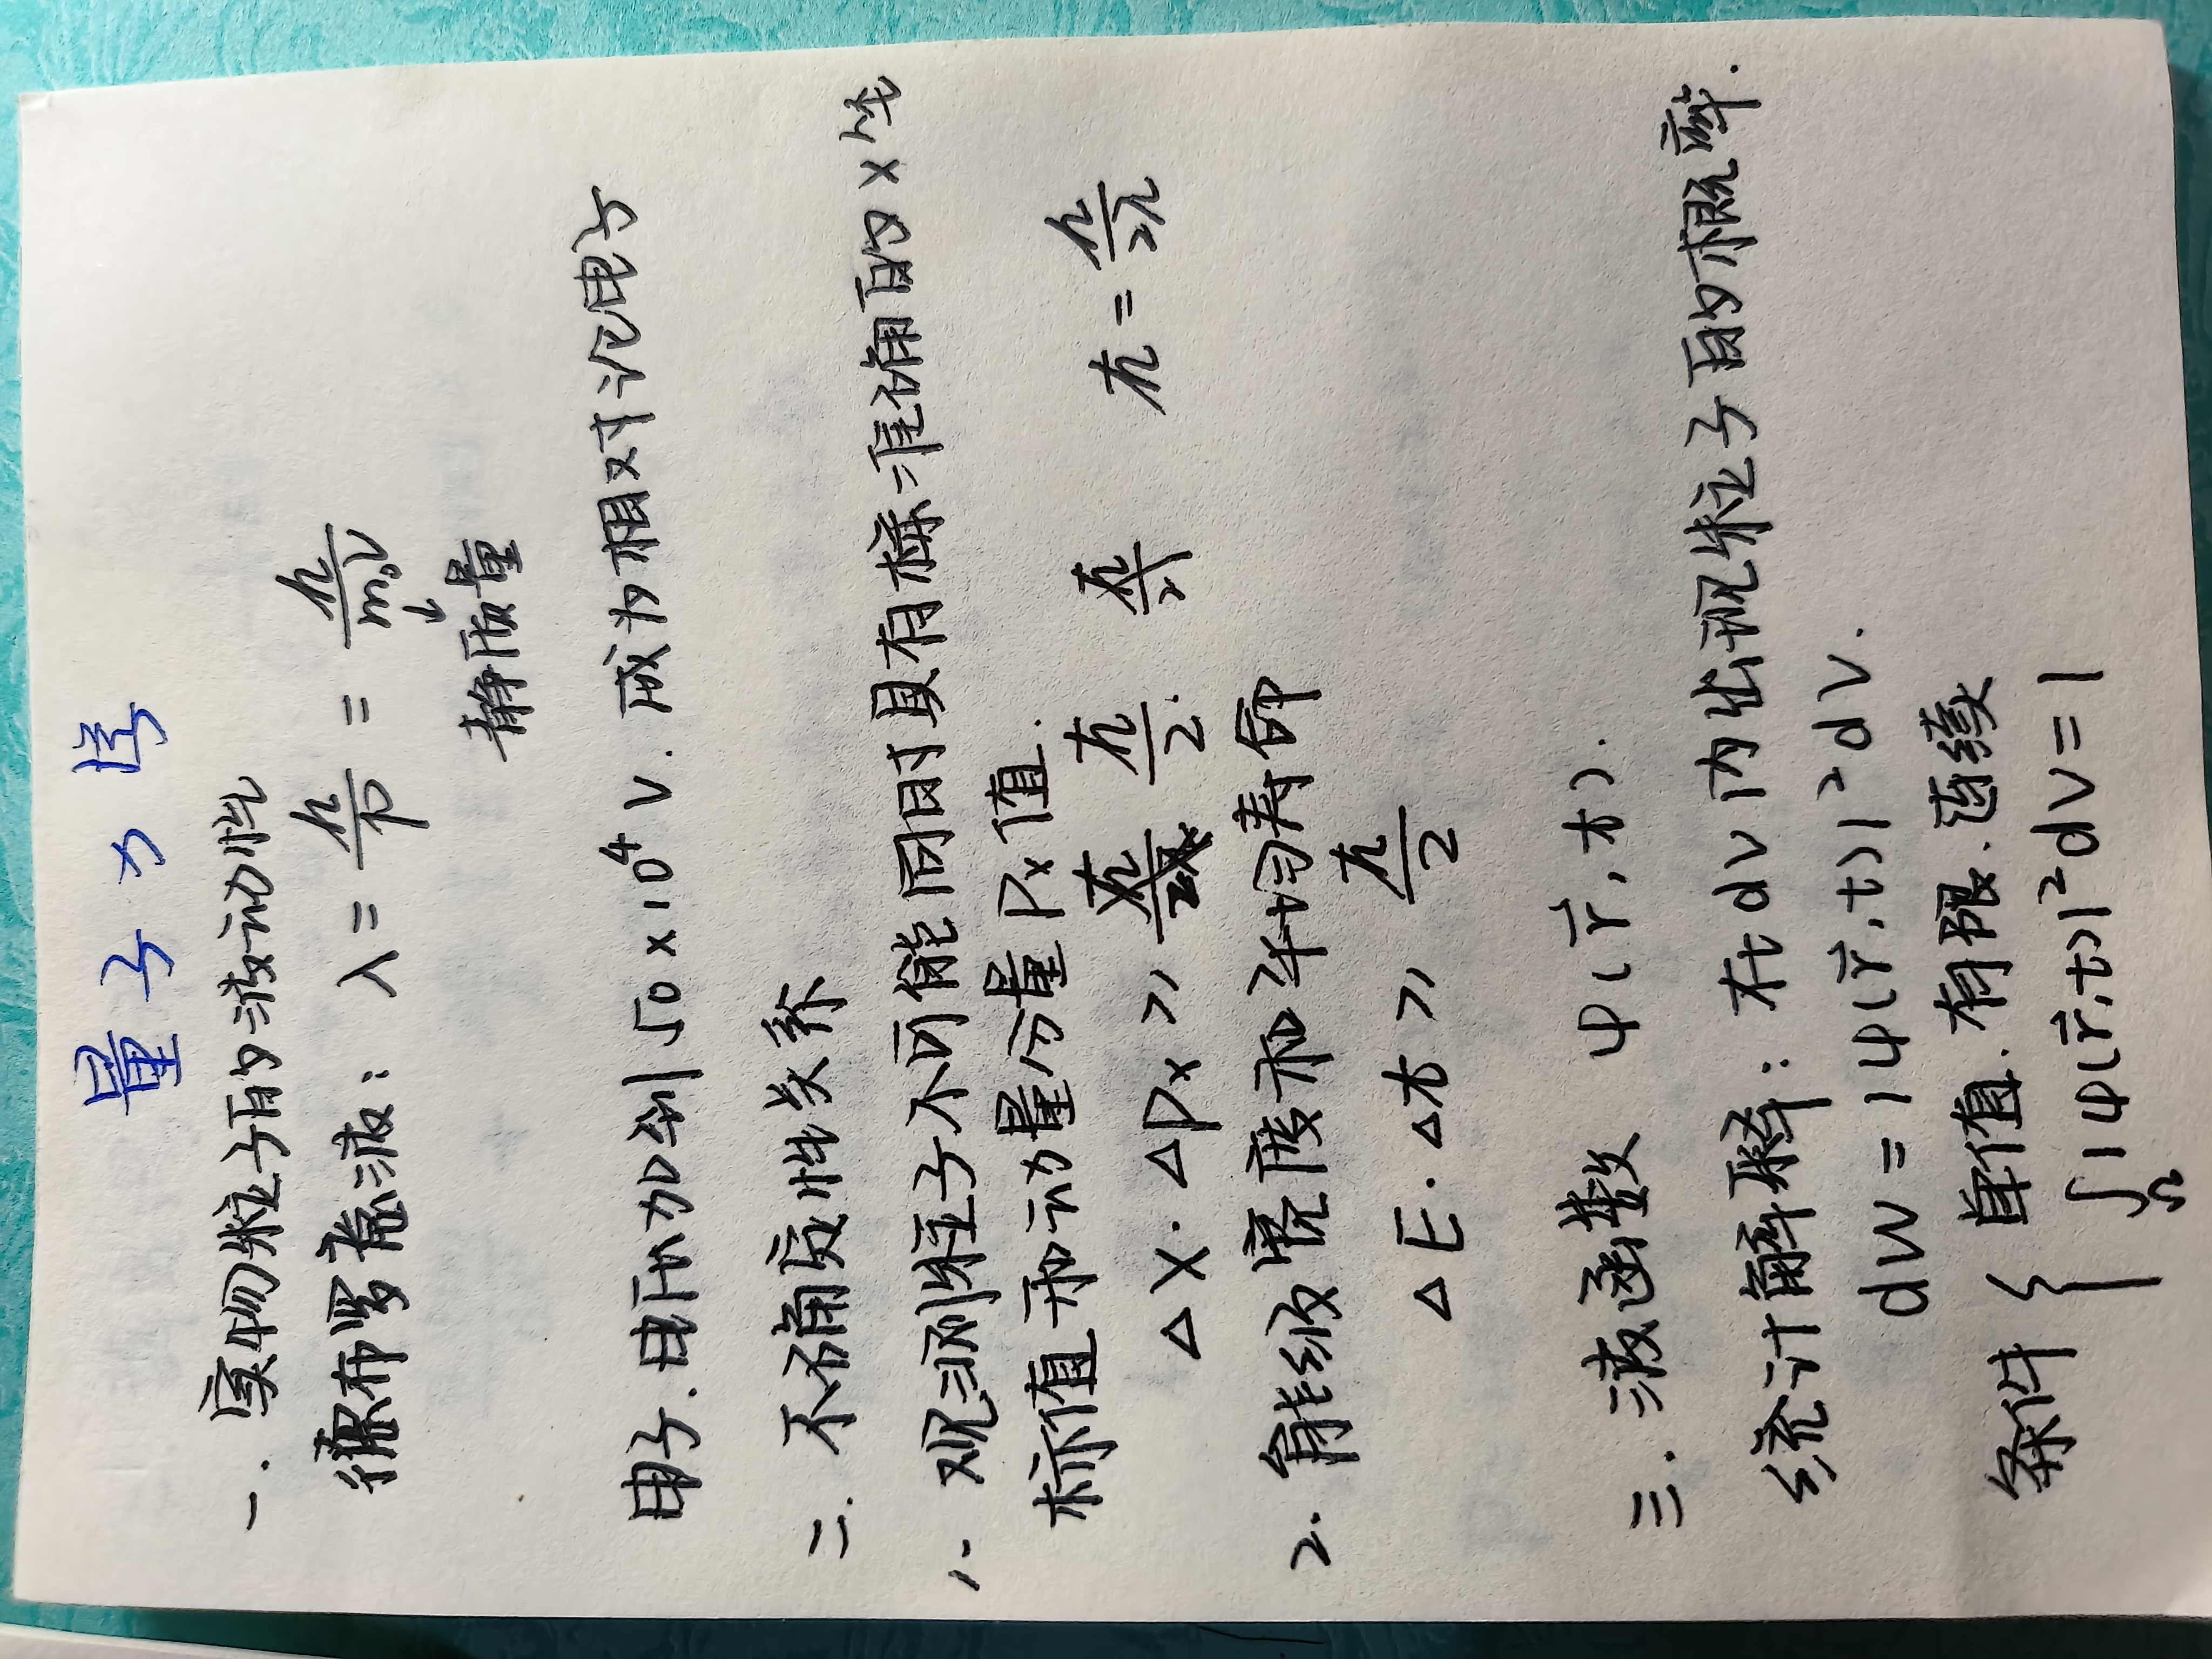 量子力学
一. 实物粒子的波动性
德布罗意波: λ = h/p = h/m₀V
↓
静质量
电子. 电压加到 50×10⁴ V. 成为相对论电子
二. 不确定性关系
1. 观测粒子不可能同时具有标准确的 x 坐
标值和动量分量 Px 值.
Δx · ΔPx ≥ ħ/2 ħ = h/2π
2. 能级宽度和平均寿命
ΔE · Δt ≥ ħ/2
三. 波函数 ψ(r⃗, t).
统计解释: 在dV内出现粒子的概率.
dW = |ψ(r⃗,t)|² dV.
条件 { 单值. 有限. 连续
∫Ω |ψ(r⃗,t)|² dV = 1